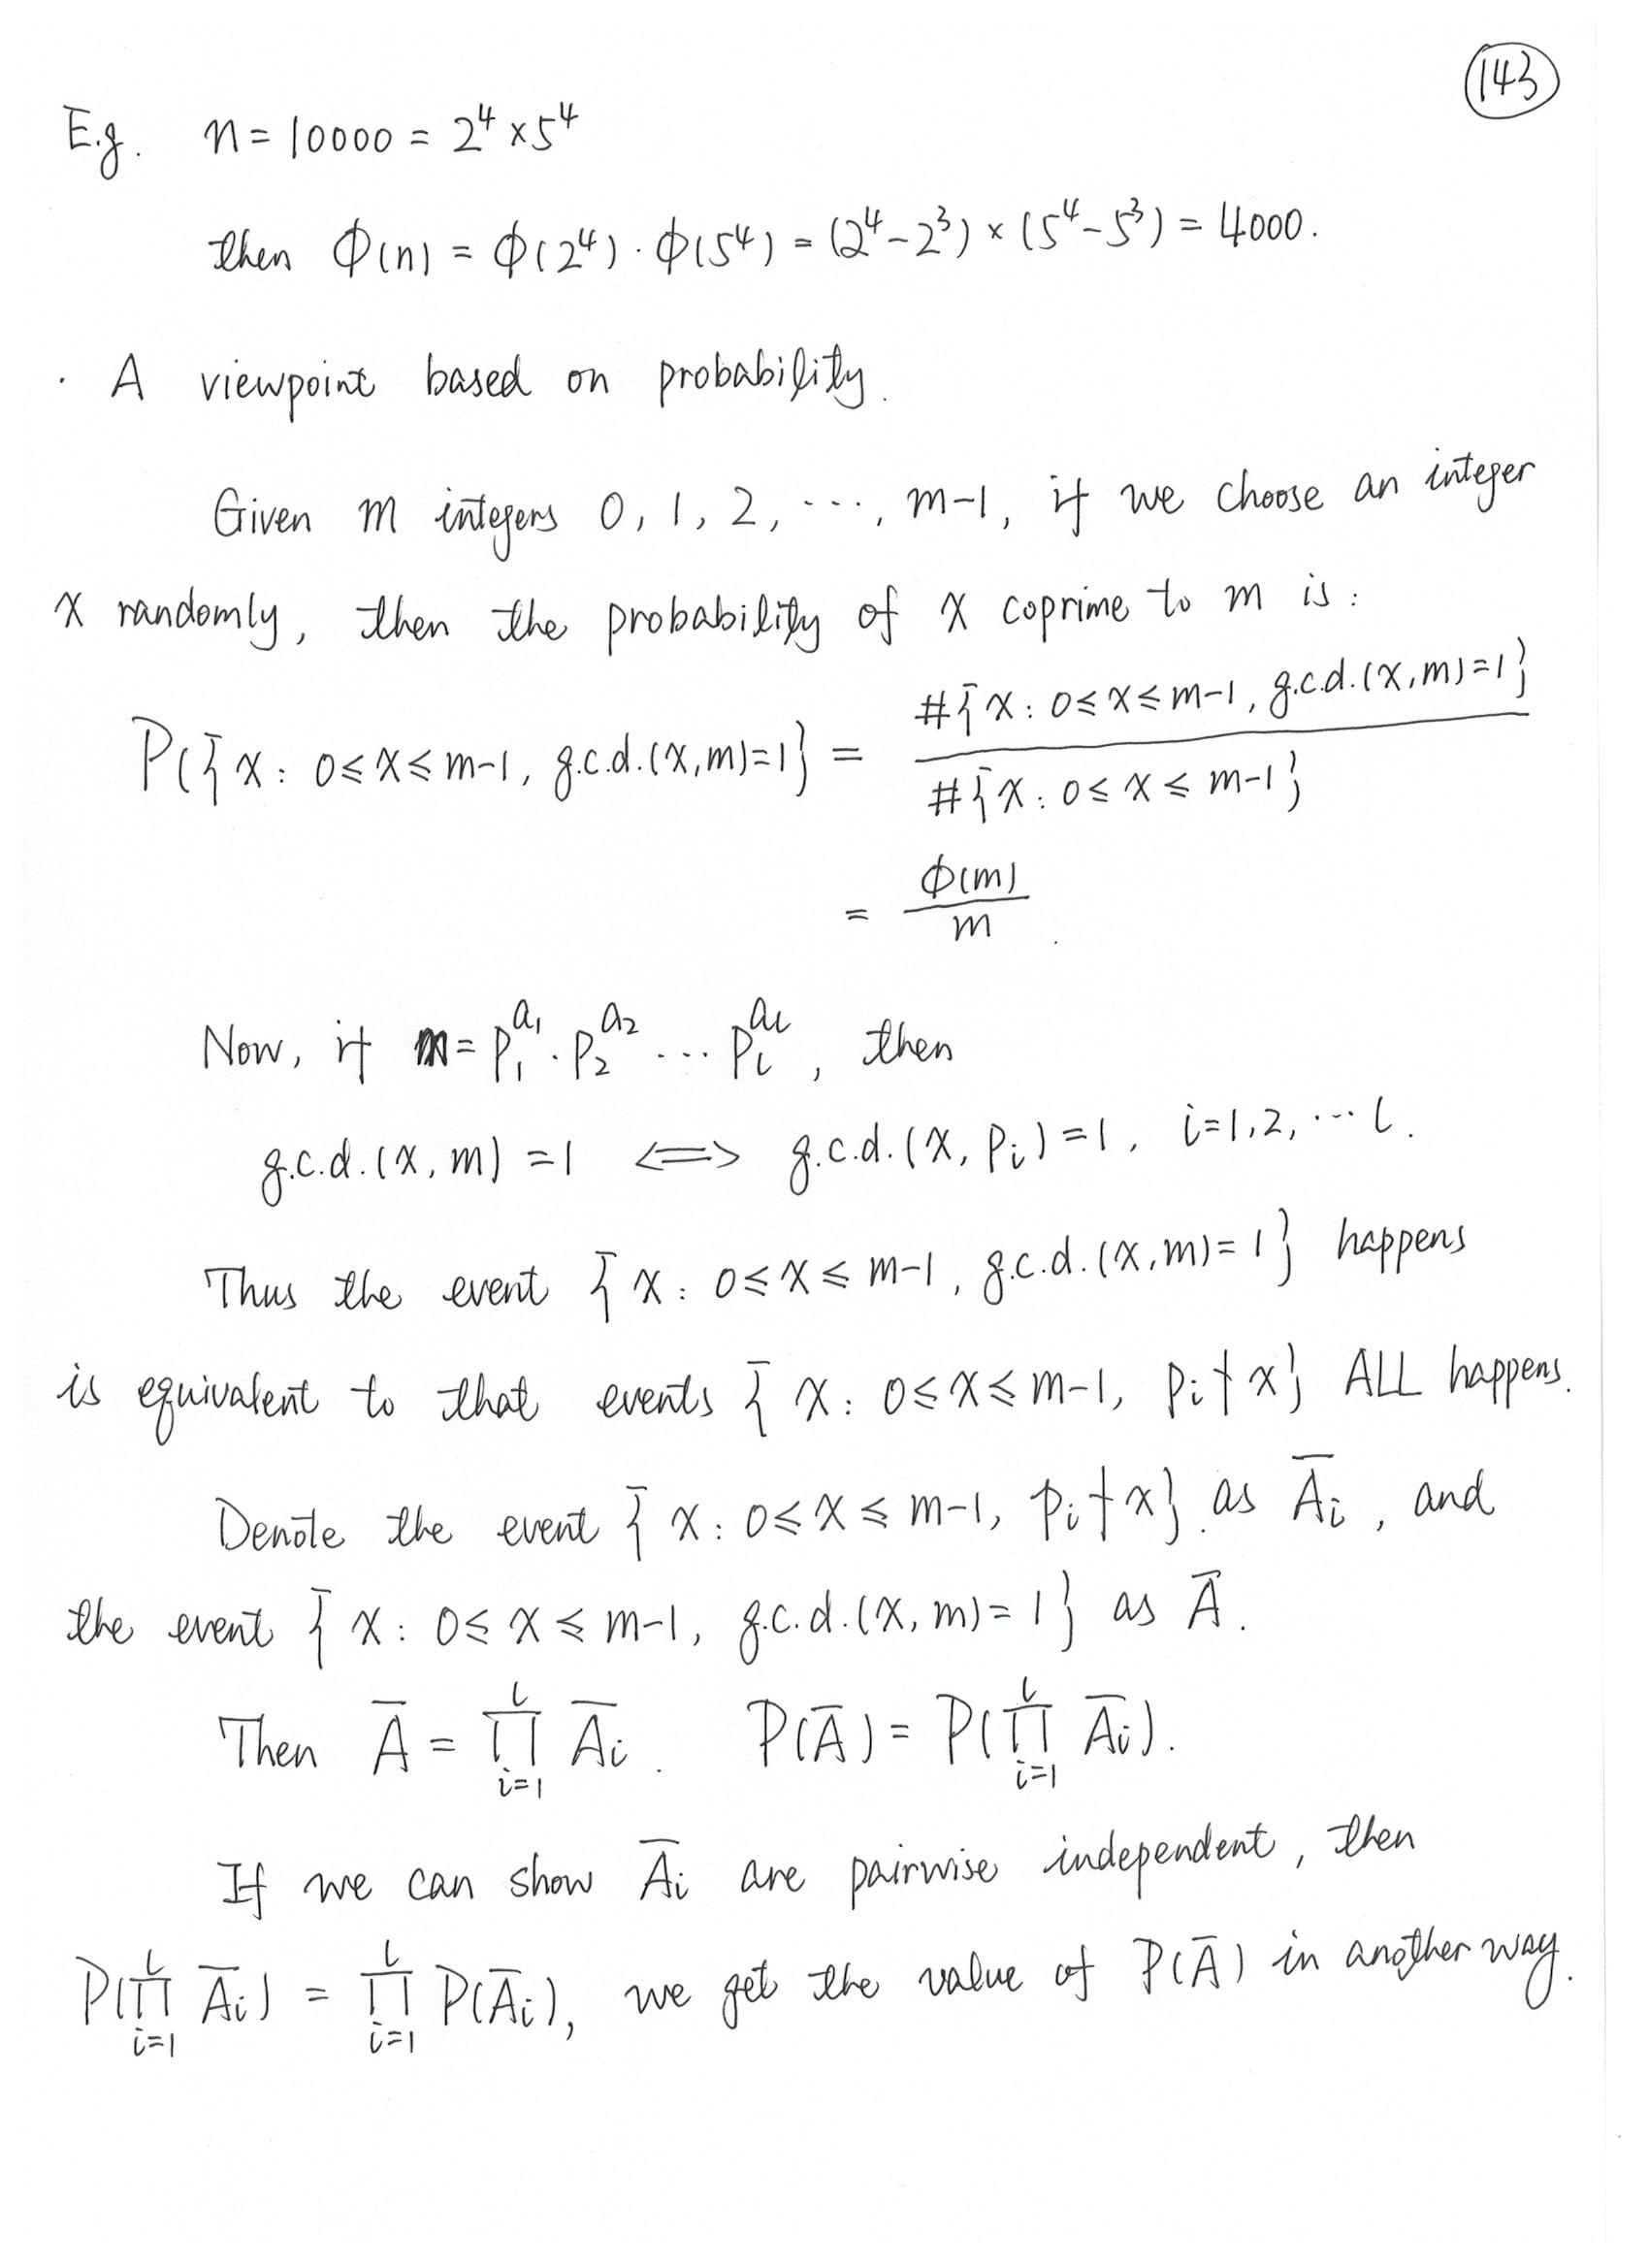 143
E.g. n = 10000 = 2⁴ × 5⁴
then ϕ(n) = ϕ(2⁴) · ϕ(5⁴) = (2⁴ − 2³) × (5⁴ − 5³) = 4000.
· A viewpoint based on probability.
Given m integers 0, 1, 2, ···, m−1, if we choose an integer
x randomly, then the probability of x coprime to m is:
P({x: 0≤x≤m−1, g.c.d.(x,m)=1} = #{x: 0≤x≤m−1, g.c.d.(x,m)=1} / #{x: 0≤x≤m−1}
= ϕ(m) / m .
Now, if m = p₁^{a₁} · p₂^{a₂} ··· p_l^{a_l}, then
g.c.d.(x, m) = 1 <=> g.c.d.(x, p_i) = 1, i=1,2,··· l.
Thus the event {x: 0≤x≤m−1, g.c.d.(x,m)=1} happens
is equivalent to that events {x: 0≤x≤m−1, p_i ∤ x} ALL happens.
Denote the event {x: 0≤x≤m−1, p_i ∤ x} as A̅_i, and
the event {x: 0≤x≤m−1, g.c.d.(x,m)=1} as A̅.
Then A̅ = ∏_{i=1}^{l} A̅_i. P(A̅) = P(∏_{i=1}^{l} A̅_i).
If we can show A̅_i are pairwise independent, then
P(∏_{i=1}^{l} A̅_i) = ∏_{i=1}^{l} P(A̅_i), we get the value of P(A̅) in another way.